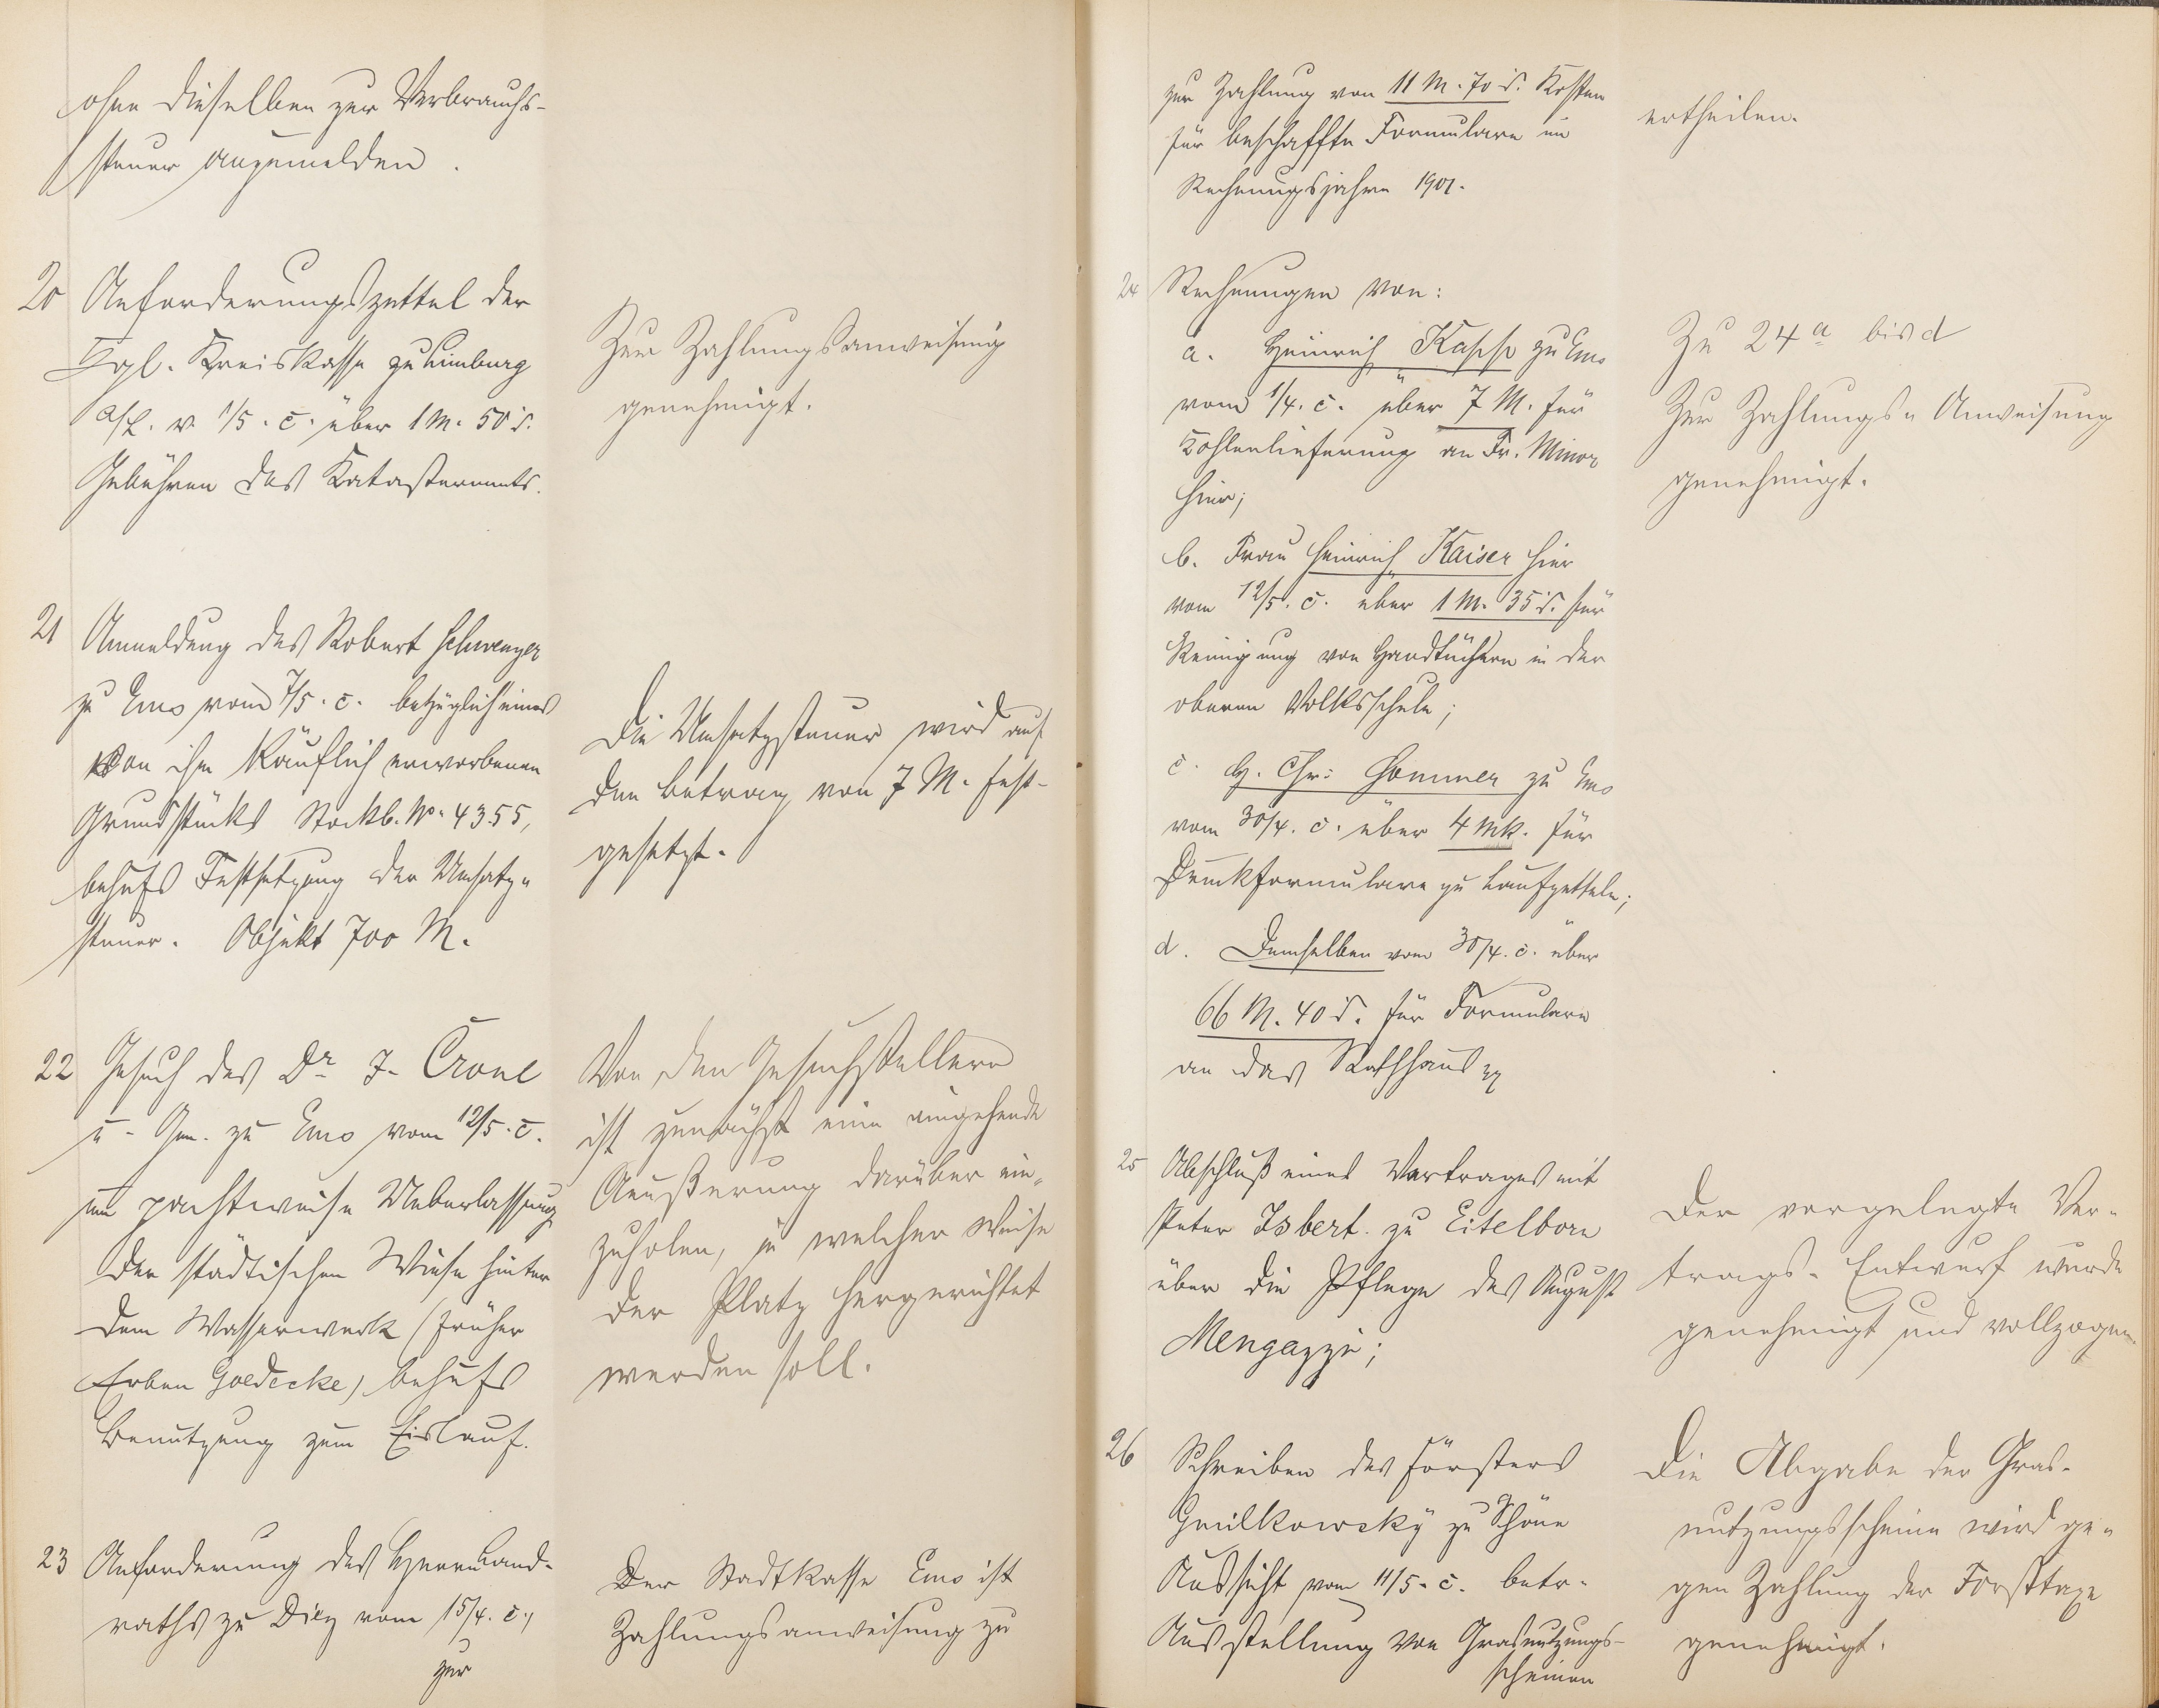 ohne dieselben zur Verbrauchs-
steuer anzumelden.
20 Anforderungszettel der
Kgl. Kreiskasse zu Limburg
a/L. v. 1/5. c. über 1 M. 50 d.
Gebühren des Katasteramts.
Zur Zahlungsanweisung
genehmigt.
21 Anmeldung des Robert Schwenzer
zu Ems vom 7/5. c. bezüglich eines
von ihm käuflich erworbenen
Grundstücks Stockb. No. 4355,
behufs Festsetzung der Umsatz-
steuer. Objekt 700 M.
Die Umsatzsteuer wird auf
den Betrag von 7 M. fest-
gesetzt.
22 Gesuch des Dr. J. Crone
u. Gen. zu Ems vom 12/5. c.
um pachtweise Ueberlassung
der städtischen Wiese hinter
dem Wasserwerk (früher
Erben Goedecke) behufs
Benutzung zum Eislauf.
Von den Gesuchstellern
ist zunächst eine eingehende
Aeußerung darüber ein-
zuholen, in welcher Weise
der Platz hergerichtet
werden soll.
23 Anforderung des Herrn Land-
raths zu Diez vom 15/4. c.,
zur
Der Stadtkasse Ems ist
Zahlungsanweisung zu
zur Zahlung von 11 M. 70 d. Kosten
für beschaffte Formulare im
Rechnungsjahre 1901.
ertheilen.
24 Rechnungen von:
a. Heinrich Kasch zu Ems
vom 1/4. c. über 7 M. für
Kohlenlieferung an Fr. Minor
hier;
b. Frau Heinrich Kaiser hier
vom 12/5. c. über 1 M. 35 d. für
Reinigung von Handtüchern in der
oberen Volksschule;
c. H. Chr. Sommer zu Ems
vom 30/4. c. über 4 Mk. für
Druckformulare zu Laufzetteln;
d. Demselben vom 30/4. c. über
66 M. 40 d. für Formulare
an das Rathhaus
Zu 24 a bis d
Zur Zahlungs-Anweisung
genehmigt.
25 Abschluß eines Vertrages mit
Peter Isbert zu Eitelborn
über die Pflege des August
Mengazzi;
Der vorgelegte Ver-
trags-Entwurf wurde
genehmigt und vollzogen.
26 Schreiben des Försters
zu Schöne
Aussicht vom 11/5. c. betr.
Ausstellung von Grasnutzungs-
scheinen
Die Abgabe der Gras-
nutzungsscheine wird ge-
gen Zahlung der Forsttaxe
genehmigt.